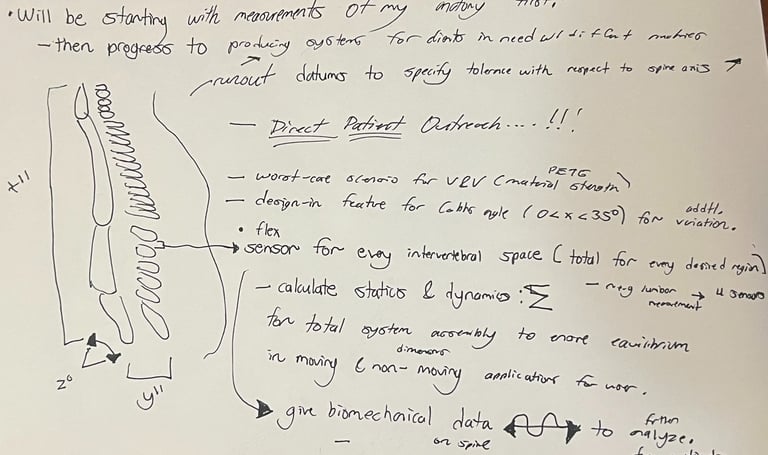 • Will be starting with measurements of my anatomy first.
– then progress to producing systems for clients in need w/ metrics
runout datums to specify tolerance with respect to spine axis ↗
– Direct Patient Outreach.... !!!
PETG
– worst-case scenario for V&V (material strength)
– design-in feature for Cobbs angle (0<x<35°) for addtl. variation.
• flex
sensor for every intervertebral space (total for every desired region)
– e.g lumbar → 4 sensors
measurement
– calculate statics & dynamics : Σ
for total system assembly to equilibrium
dimensions
in moving & non-moving applications for user.
give biomechanical data to further analyze.
on spine
x"
y"
z°